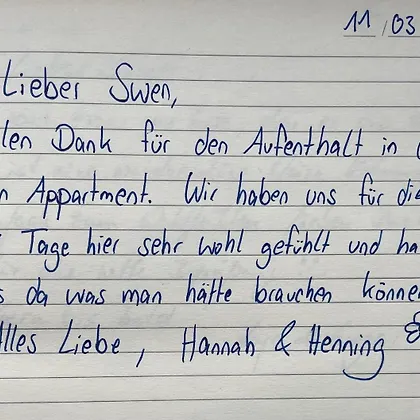 11/03
Lieber Swen,
len Dank für den Aufenthalt in
n Appartment. Wir haben uns für die
Tage hier sehr wohl gefühlt und ha
s da was man hätte brauchen könne
Alles Liebe, Hannah & Henning